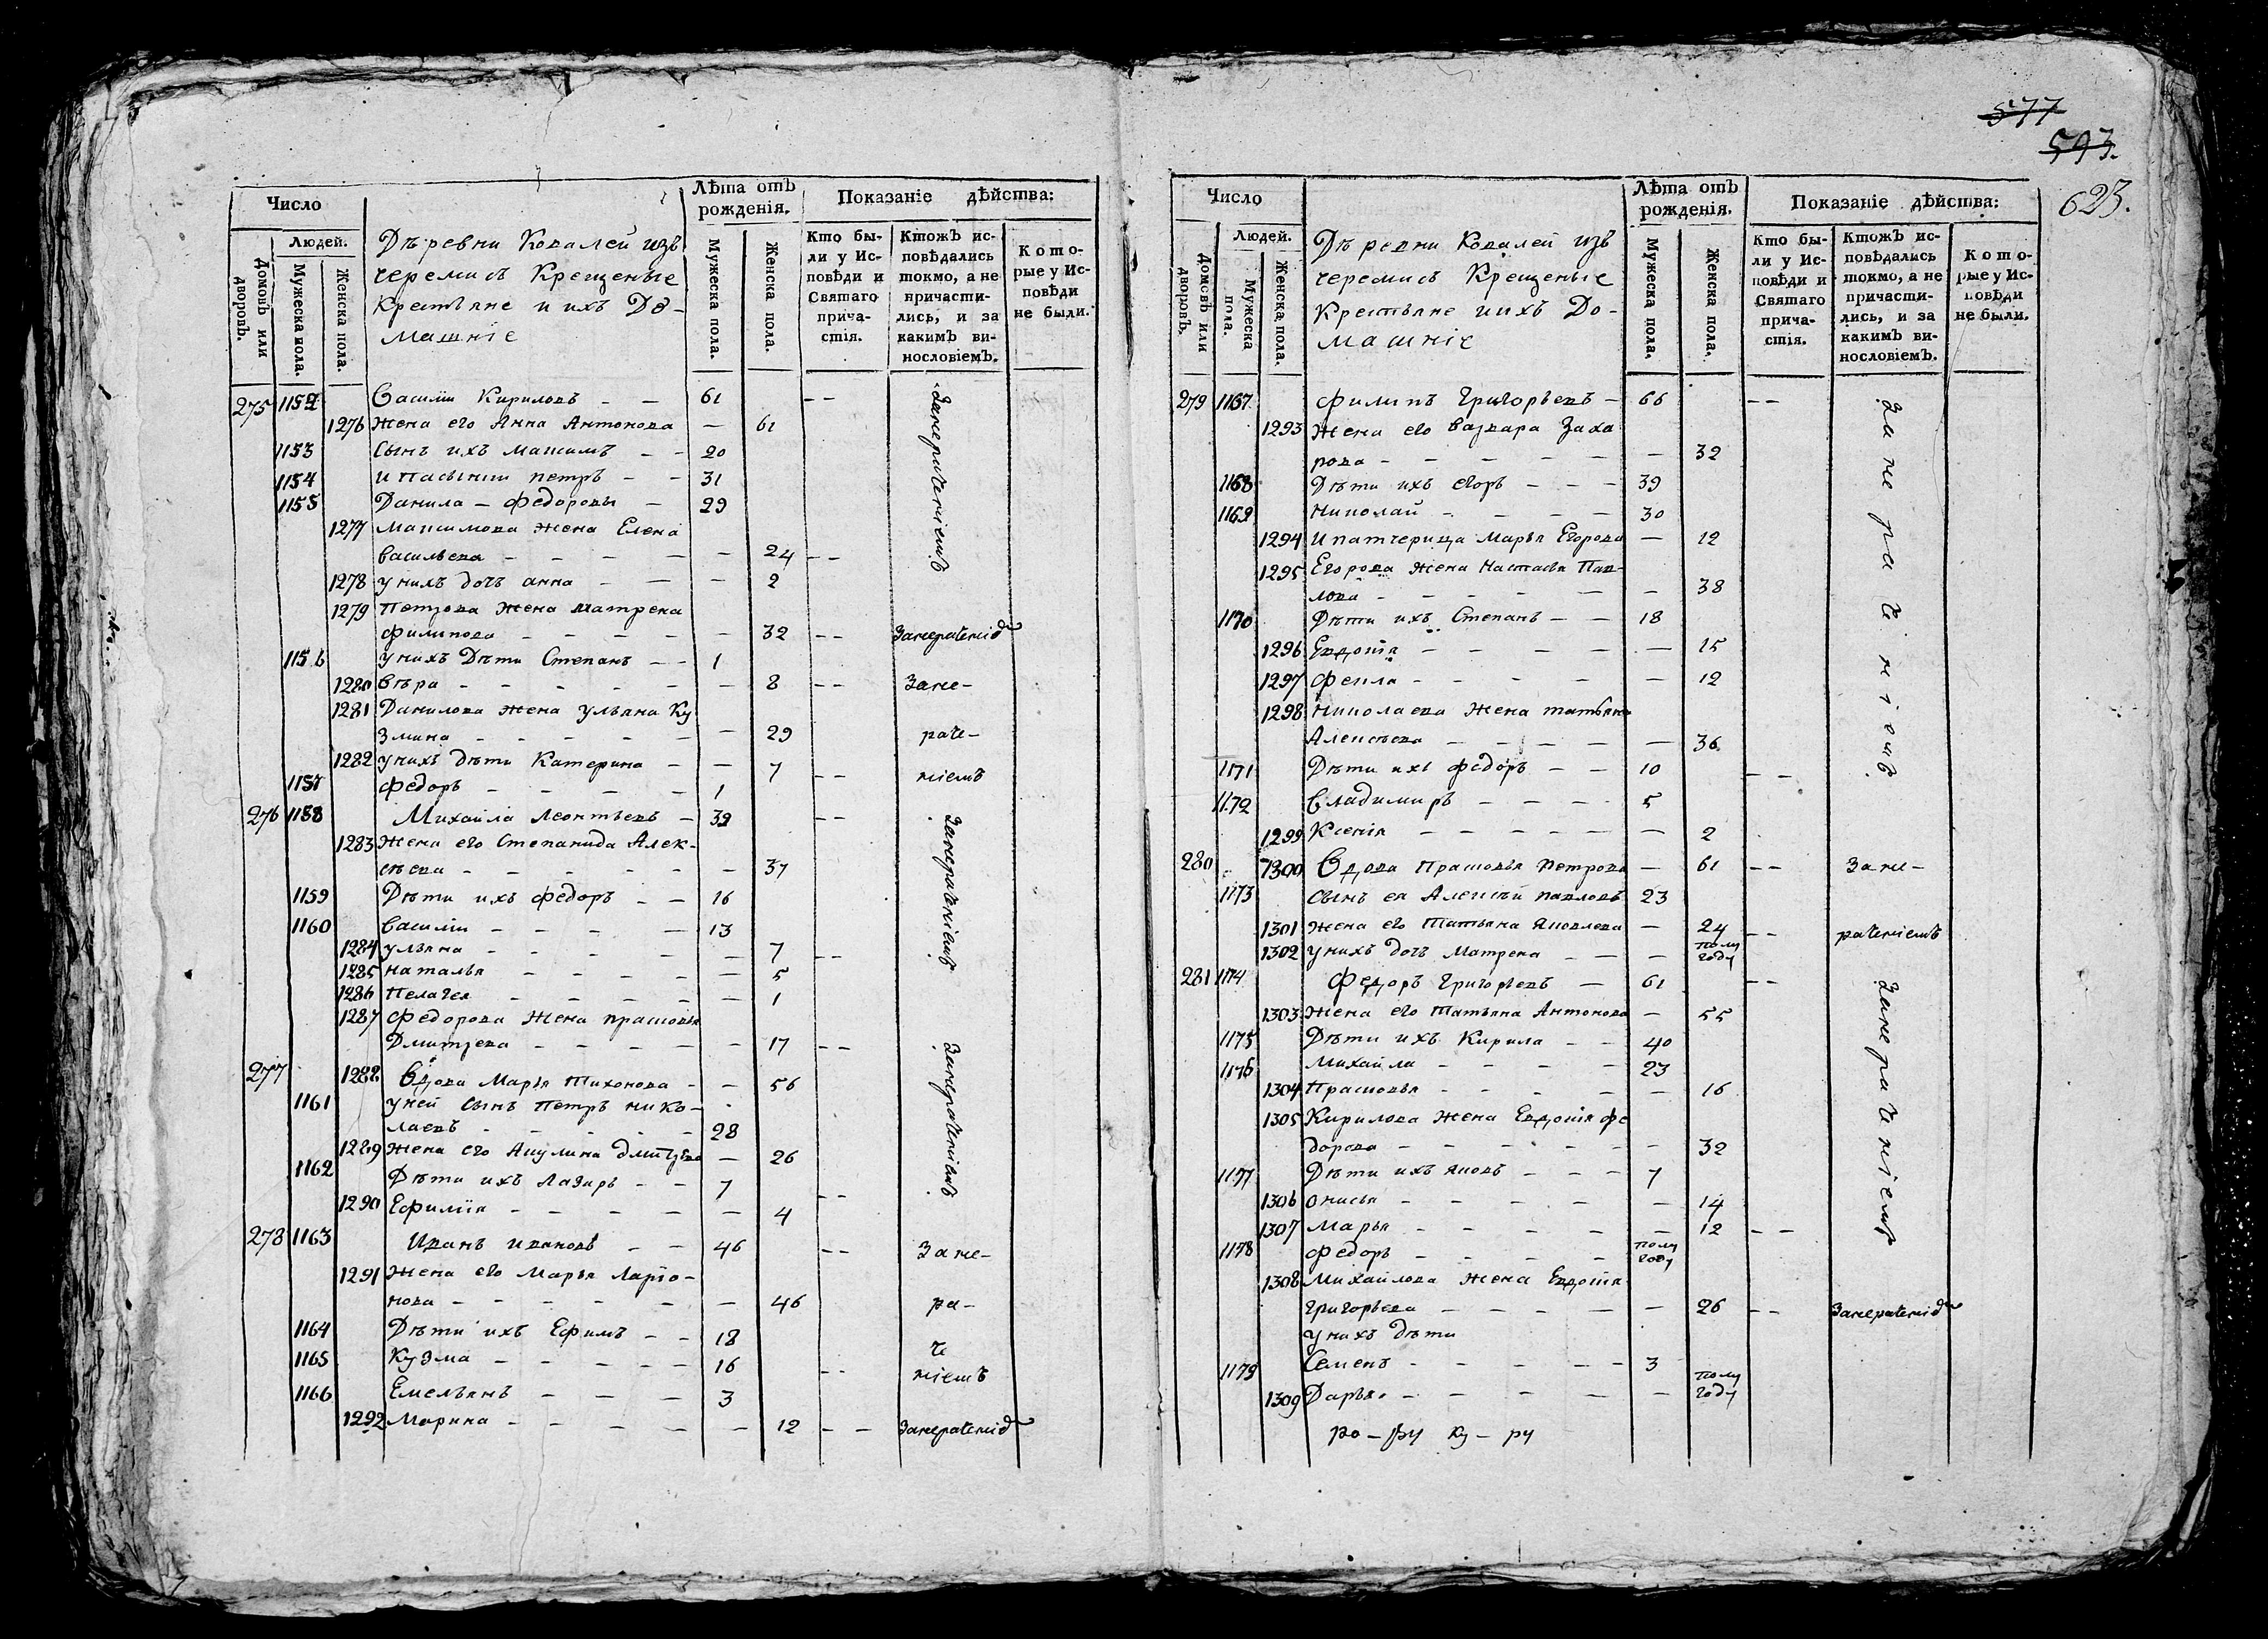 577
593.
623.
Число
Лѣта отъ рожденія.
Показаніе дѣйства:
Домовъ или дворовъ.
Людей.
Мужеска пола.
Женска пола.
Деревни Ковалей изъ
черемисъ Крещеные
Крестьяне и ихъ До-
машніе
Мужеска пола.
Женска пола.
Кто бы-
ли у Ис-
повѣди и
Святаго
прича-
стія.
Ктожъ ис-
повѣдались
токмо, а не
причасти-
лись, и за
какимъ ви-
нословіемъ.
Кото-
рые у Ис-
повѣди
не были.
275 1152 Василіи Кириловъ – – 61 – –
1276 Жена его Анна Антонова – 61
1153 Сынъ ихъ Максимъ – – 20
1154 и Пасынки петръ – – 31
1155 Данила – Федоровы – 29
1277 Максимова Жена Елена
васильева – – – – – 24 – –
1278 у нихъ дочь анна – – – 2
занерачениемъ
1279 Петрова Жена матрена
филипова – – – – – 32 – – Занерачениемъ
1156 у нихъ Дѣти Степанъ – – 1
1280 вѣра – – – – – – 8 – – Зане-
1281 Данилова Жена ульяна Ку
змина – – – – – – 29 раче-
1282 у нихъ дѣти Катерина – – 7 – – ніемъ
1157 федоръ – – – – 1
276 1158 Михайла Леонтьевъ – 39 – –
1283 Жена его Степанида Алек-
сѣева – – – – – – 37
занерачениемъ
1159 Дѣти ихъ федоръ – – 16
1160 василіи – – – – 13
1284 ульяна – – – – – 7 – –
1285 наталья – – – – – 5
1286 Пелагея – – – – – 1
1287 Федорова Жена прасковья
Дмитрева – – – – – 17 – –
277 1288 Вдова Марья Тихонова – – 56
1161 у ней сынъ Петръ нико-
лаевъ – – – – 28
занерачениемъ
1289 Жена его Акулина дмитрева – 26
1162 Дѣти ихъ Лазарь – – 7
1290 Ефимія – – – – – 4 – –
278 1163 Иванъ ивановъ – – 46 – – Зане-
1291 Жена его Марья Ларіо-
нова – – – – – – 46 ра-
1164 Дѣти ихъ Ефимъ – – 18 че
1165 Кузма – – – – – 16 – – ніемъ
1166 Емельянъ – – – 3
1292 Марина – – – – – 12 – – Занерачениемъ
Число
Лѣта отъ рожденія.
Показаніе дѣйства:
Домовъ или дворовъ.
Людей.
Мужеска пола.
Женска пола.
Деревни Ковалей изъ
черемисъ Крещеные
Крестьяне и ихъ До-
машніе
Мужеска пола.
Женска пола.
Кто бы-
ли у Ис-
повѣди и
Святаго
прича-
стія.
Ктожъ ис-
повѣдались
токмо, а не
причасти-
лись, и за
какимъ ви-
нословіемъ.
Кото-
рые у Ис-
повѣди
не были.
279 1167 филипъ Григорьевъ – 66 – –
1293 Жена его варвара Заха
рова – – – – – – 32
1168 Дѣти ихъ егоръ – – – 39
1169 Николай – – – – 30
1294 И патчерица Марья Егорова – 12
1295 Егорова Жена Настасья Пав-
лова – – – – – – 38
занерачениемъ
1170 Дѣти ихъ Степанъ – – 18
1296 Евдокія – – – – – 15
1297 Фекла – – – – – 12
1298 Николаева Жена татьяна
Алексѣева – – – – – 36
1171 Дѣти ихъ федоръ – – 10 – –
1172 владимиръ – – – – 5
1299 Ксенія – – – – – – 2
280 1300 Вдова Прасковья Петрова – 61 – – Зане-
1173 Сынъ ея Алексѣй павловъ 23
1301 Жена его Татьяна Яковлева – 24 – – рачениемъ
1302 у нихъ дочь Матрена – – – полу году
281 1174 Федоръ Григорьевъ – 61 – –
1303 Жена его Татьяна Антонова – 55
1175 Дѣти ихъ Кирила – – 40
1176 Михайла – – – – 23
1304 Прасковья – – – – – 16
1305 Кирилова Жена Евдокія фе
дорова – – – – – – 32
занерачениемъ
1177 Дѣти ихъ яковъ – – – 7
1306 Онисья – – – – – 14
1307 Марья – – – – – 12 – –
1178 федоръ – – – – полу году
1308 Михайлова Жена Евдокія
григорьева – – – – – 26 – – Занерачениемъ
у нихъ дѣти
1179 Семенъ – – – – – 3
1309 Дарья – – – – – полу году
ро – ву ку – ру